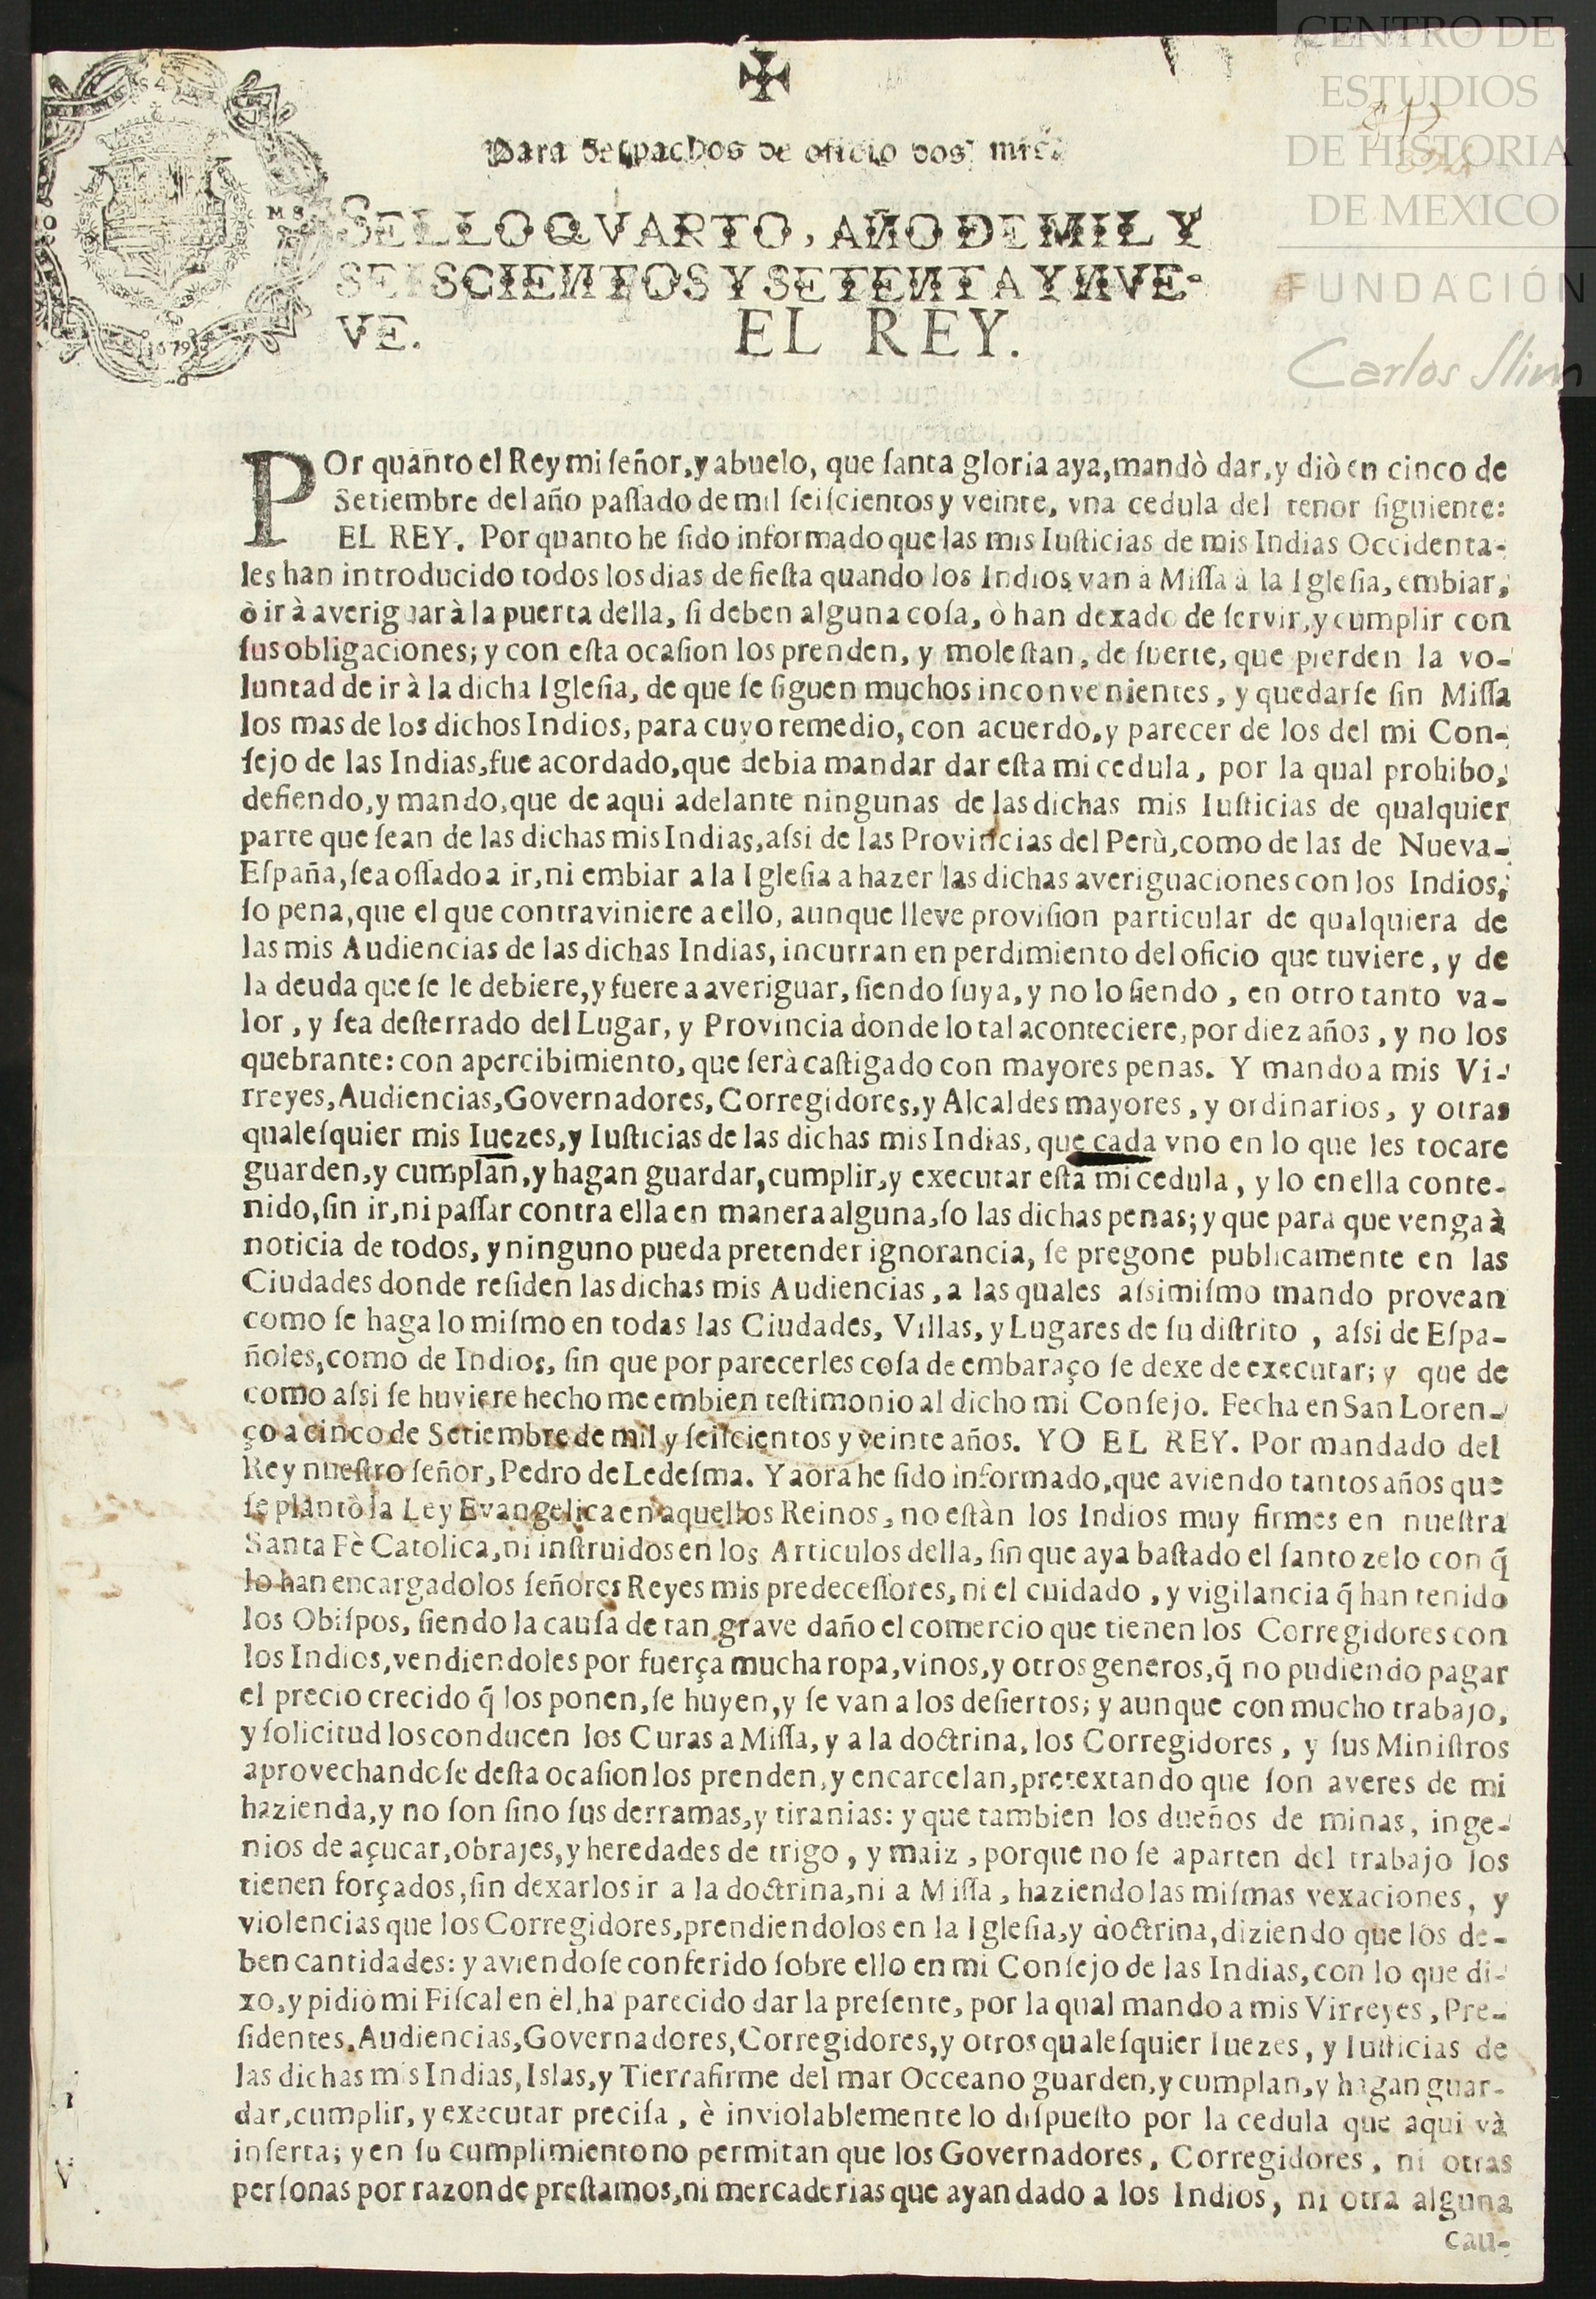 CENTRO DE
ESTUDIOS
DE HISTORIA
DE MEXICO
FUNDACIÓN
Carlos Slim
Para despachos de oficio dos mrs.
SELLO QVARTO, AÑO DE MIL Y
SEISCIENTOS Y SETENTA Y NVE-
VE.
1679
EL REY.
POr quanto el Rey mi señor, y abuelo, que santa gloria aya, mandò dar, y diò en cinco de
Setiembre del año passado de mil seiscientos y veinte, vna cedula del tenor siguiente:
EL REY. Por quanto he sido informado que las mis Iusticias de mis Indias Occidenta-
les han introducido todos los dias de fiesta quando los Indios van à Missa à la Iglesia, embiar,
ò ir à averiguar à la puerta della, si deben alguna cosa, ò han dexado de servir, y cumplir con
sus obligaciones; y con esta ocasion los prenden, y molestan, de suerte, que pierden la vo-
luntad de ir à la dicha Iglesia, de que se siguen muchos inconvenientes, y quedarse sin Missa
los mas de los dichos Indios, para cuyo remedio, con acuerdo, y parecer de los del mi Con-
sejo de las Indias, fue acordado, que debia mandar dar esta mi cedula, por la qual prohibo,
defiendo, y mando, que de aqui adelante ningunas de las dichas mis Iusticias de qualquier
parte que sean de las dichas mis Indias, assi de las Provincias del Perù, como de las de Nueva-
España, sea ossado a ir, ni embiar a la Iglesia a hazer las dichas averiguaciones con los Indios,
so pena, que el que contraviniere a ello, aunque lleve provision particular de qualquiera de
las mis Audiencias de las dichas Indias, incurran en perdimiento del oficio que tuviere, y de
la deuda que se le debiere, y fuere a averiguar, siendo suya, y no lo siendo, en otro tanto va-
lor, y sea desterrado del Lugar, y Provincia donde lo tal aconteciere, por diez años, y no los
quebrante: con apercibimiento, que serà castigado con mayores penas. Y mando a mis Vi-
rreyes, Audiencias, Governadores, Corregidores, y Alcaldes mayores, y ordinarios, y otras
qualesquier mis Iuezes, y Iusticias de las dichas mis Indias, que cada vno en lo que les tocare
guarden, y cumplan, y hagan guardar, cumplir, y executar esta mi cedula, y lo en ella conte-
nido, sin ir, ni passar contra ella en manera alguna, so las dichas penas; y que para que venga à
noticia de todos, y ninguno pueda pretender ignorancia, se pregone publicamente en las
Ciudades donde residen las dichas mis Audiencias, a las quales assimismo mando provean
como se haga lo mismo en todas las Ciudades, Villas, y Lugares de su distrito, assi de Espa-
ñoles, como de Indios, sin que por parecerles cosa de embaraço se dexe de executar; y que de
como assi se huviere hecho me embien testimonio al dicho mi Consejo. Fecha en San Loren-
ço a cinco de Setiembre de mil y seiscientos y veinte años. YO EL REY. Por mandado del
Rey nuestro señor, Pedro de Ledesma. Y aora he sido informado, que aviendo tantos años que
se plantò la Ley Evangelica en aquellos Reinos, no estàn los Indios muy firmes en nuestra
Santa Fè Catolica, ni instruidos en los Articulos della, sin que aya bastado el santo zelo con q̃
lo han encargado los señores Reyes mis predecessores, ni el cuidado, y vigilancia q̃ han tenido
los Obispos, siendo la causa de tan grave daño el comercio que tienen los Corregidores con
los Indios, vendiendoles por fuerça mucha ropa, vinos, y otros generos, q̃ no pudiendo pagar
el precio crecido q̃ los ponen, se huyen, y se van a los desiertos; y aunque con mucho trabajo,
y solicitud los conducen los Curas a Missa, y a la doctrina, los Corregidores, y sus Ministros
aprovechandose desta ocasion los prenden, y encarcelan, pretextando que son averes de mi
hazienda, y no son sino sus derramas, y tiranias: y que tambien los dueños de minas, inge-
nios de açucar, obrajes, y heredades de trigo, y maiz, porque no se aparten del trabajo los
tienen forçados, sin dexarlos ir a la doctrina, ni a Missa, haziendo las mismas vexaciones, y
violencias que los Corregidores, prendiendolos en la Iglesia, y doctrina, diziendo que los de-
ben cantidades: y aviendose conferido sobre ello en mi Consejo de las Indias, con lo que di-
xo, y pidiò mi Fiscal en èl, ha parecido dar la presente, por la qual mando a mis Virreyes, Pre-
sidentes, Audiencias, Governadores, Corregidores, y otros qualesquier Iuezes, y Iusticias de
las dichas mis Indias, Islas, y Tierrafirme del mar Occeano guarden, y cumplan, y hagan guar-
dar, cumplir, y executar precisa, è inviolablemente lo dispuesto por la cedula que aqui và
inserta; y en su cumplimiento no permitan que los Governadores, Corregidores, ni otras
personas por razon de prestamos, ni mercaderias que ayan dado a los Indios, ni otra alguna
cau-